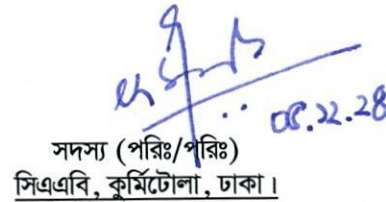 ০৫.১২.২৪
সদস্য (পরিঃ/পরিঃ)
সিএএবি, কুর্মিটোলা, ঢাকা।